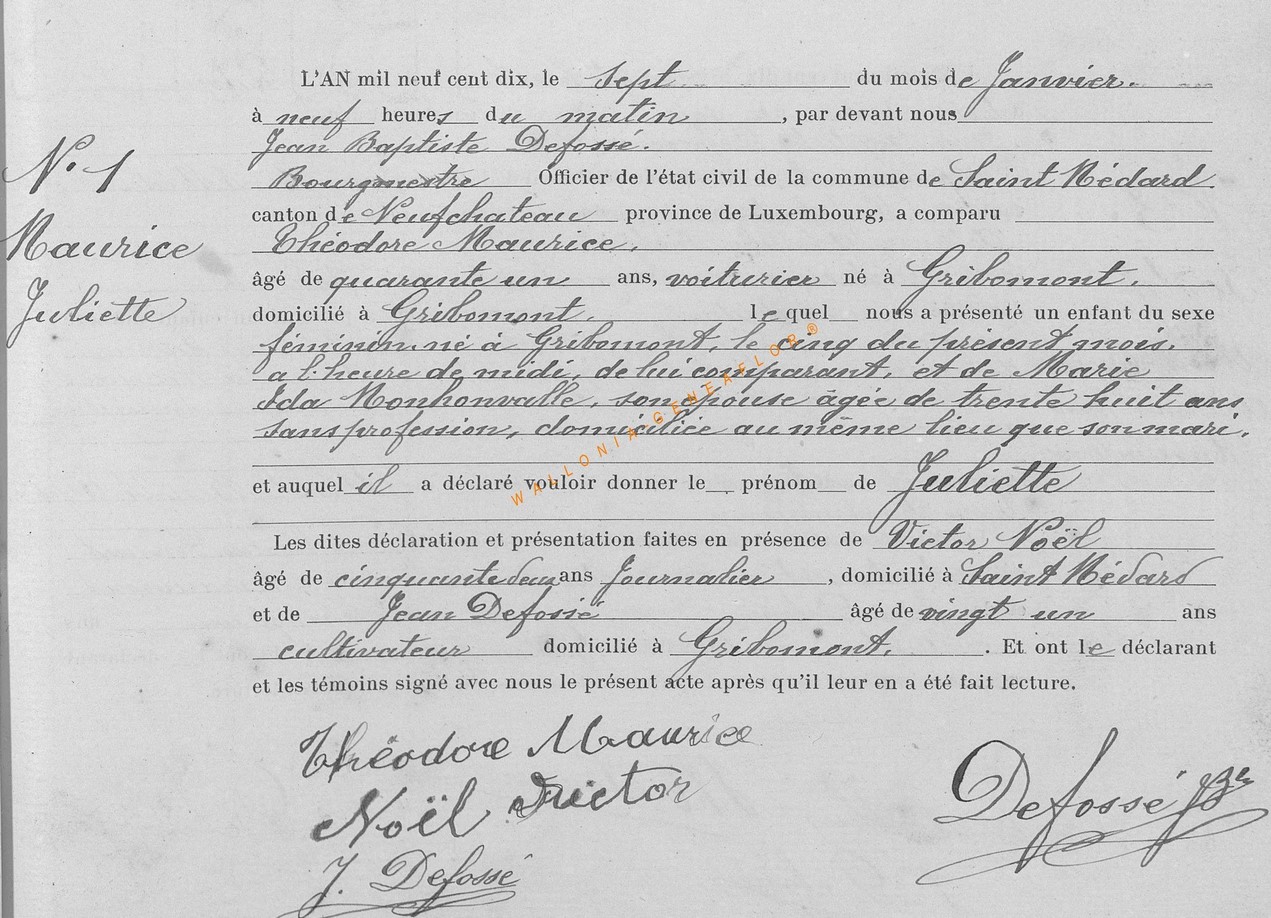 L'AN mil neuf cent dix, le sept du mois de Janvier.
à neuf heures du matin, par devant nous
Jean Baptiste Defossé.
Bourgmestre Officier de l'état civil de la commune de Saint Médard
canton de Neufchateau province de Luxembourg, a comparu
Théodore Maurice,
âgé de quarante un ans, voiturier né à Gribomont,
domicilié à Gribomont. lequel nous a présenté un enfant du sexe
féminin, né à Gribomont, le cinq du présent mois.
a l'heure de midi, de lui comparant, et de Marie
Ida Monhonvalle, son épouse âgée de trente huit ans
sans profession, domiciliée au même lieu que son mari.
et auquel il a déclaré vouloir donner le prénom de Juliette
Les dites déclaration et présentation faites en présence de Victor Noël
âgé de cinquante deux ans Journalier, domicilié à Saint Médard
et de Jean Defossé âgé de vingt un ans
cultivateur domicilié à Gribomont. . Et ont le déclarant
et les témoins signé avec nous le présent acte après qu'il leur en a été fait lecture.
N° 1
Maurice
Juliette
WALLONIA-GENEAFLOR®
Théodore Maurice
Noël Victor
J. Defossé
Defossé JBte